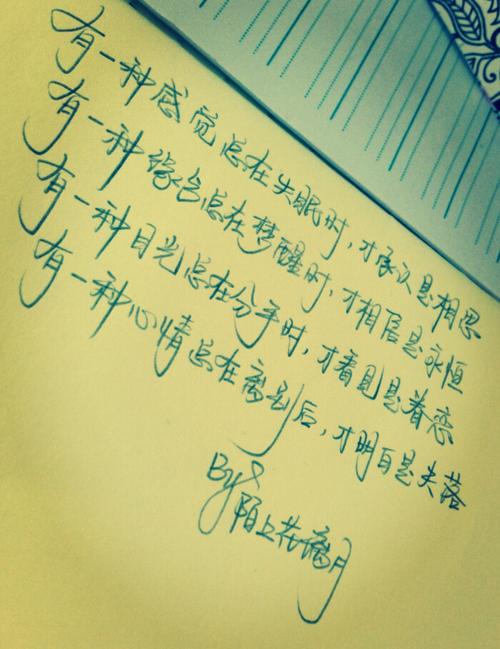 有一种感觉总在失眠时，才承认是相思
有一种缘份总在梦醒时，才相信是永恒
有一种目光总在分手时，才看到是眷恋
有一种心情总在离别后，才明白是失落
By
陌上花漓月